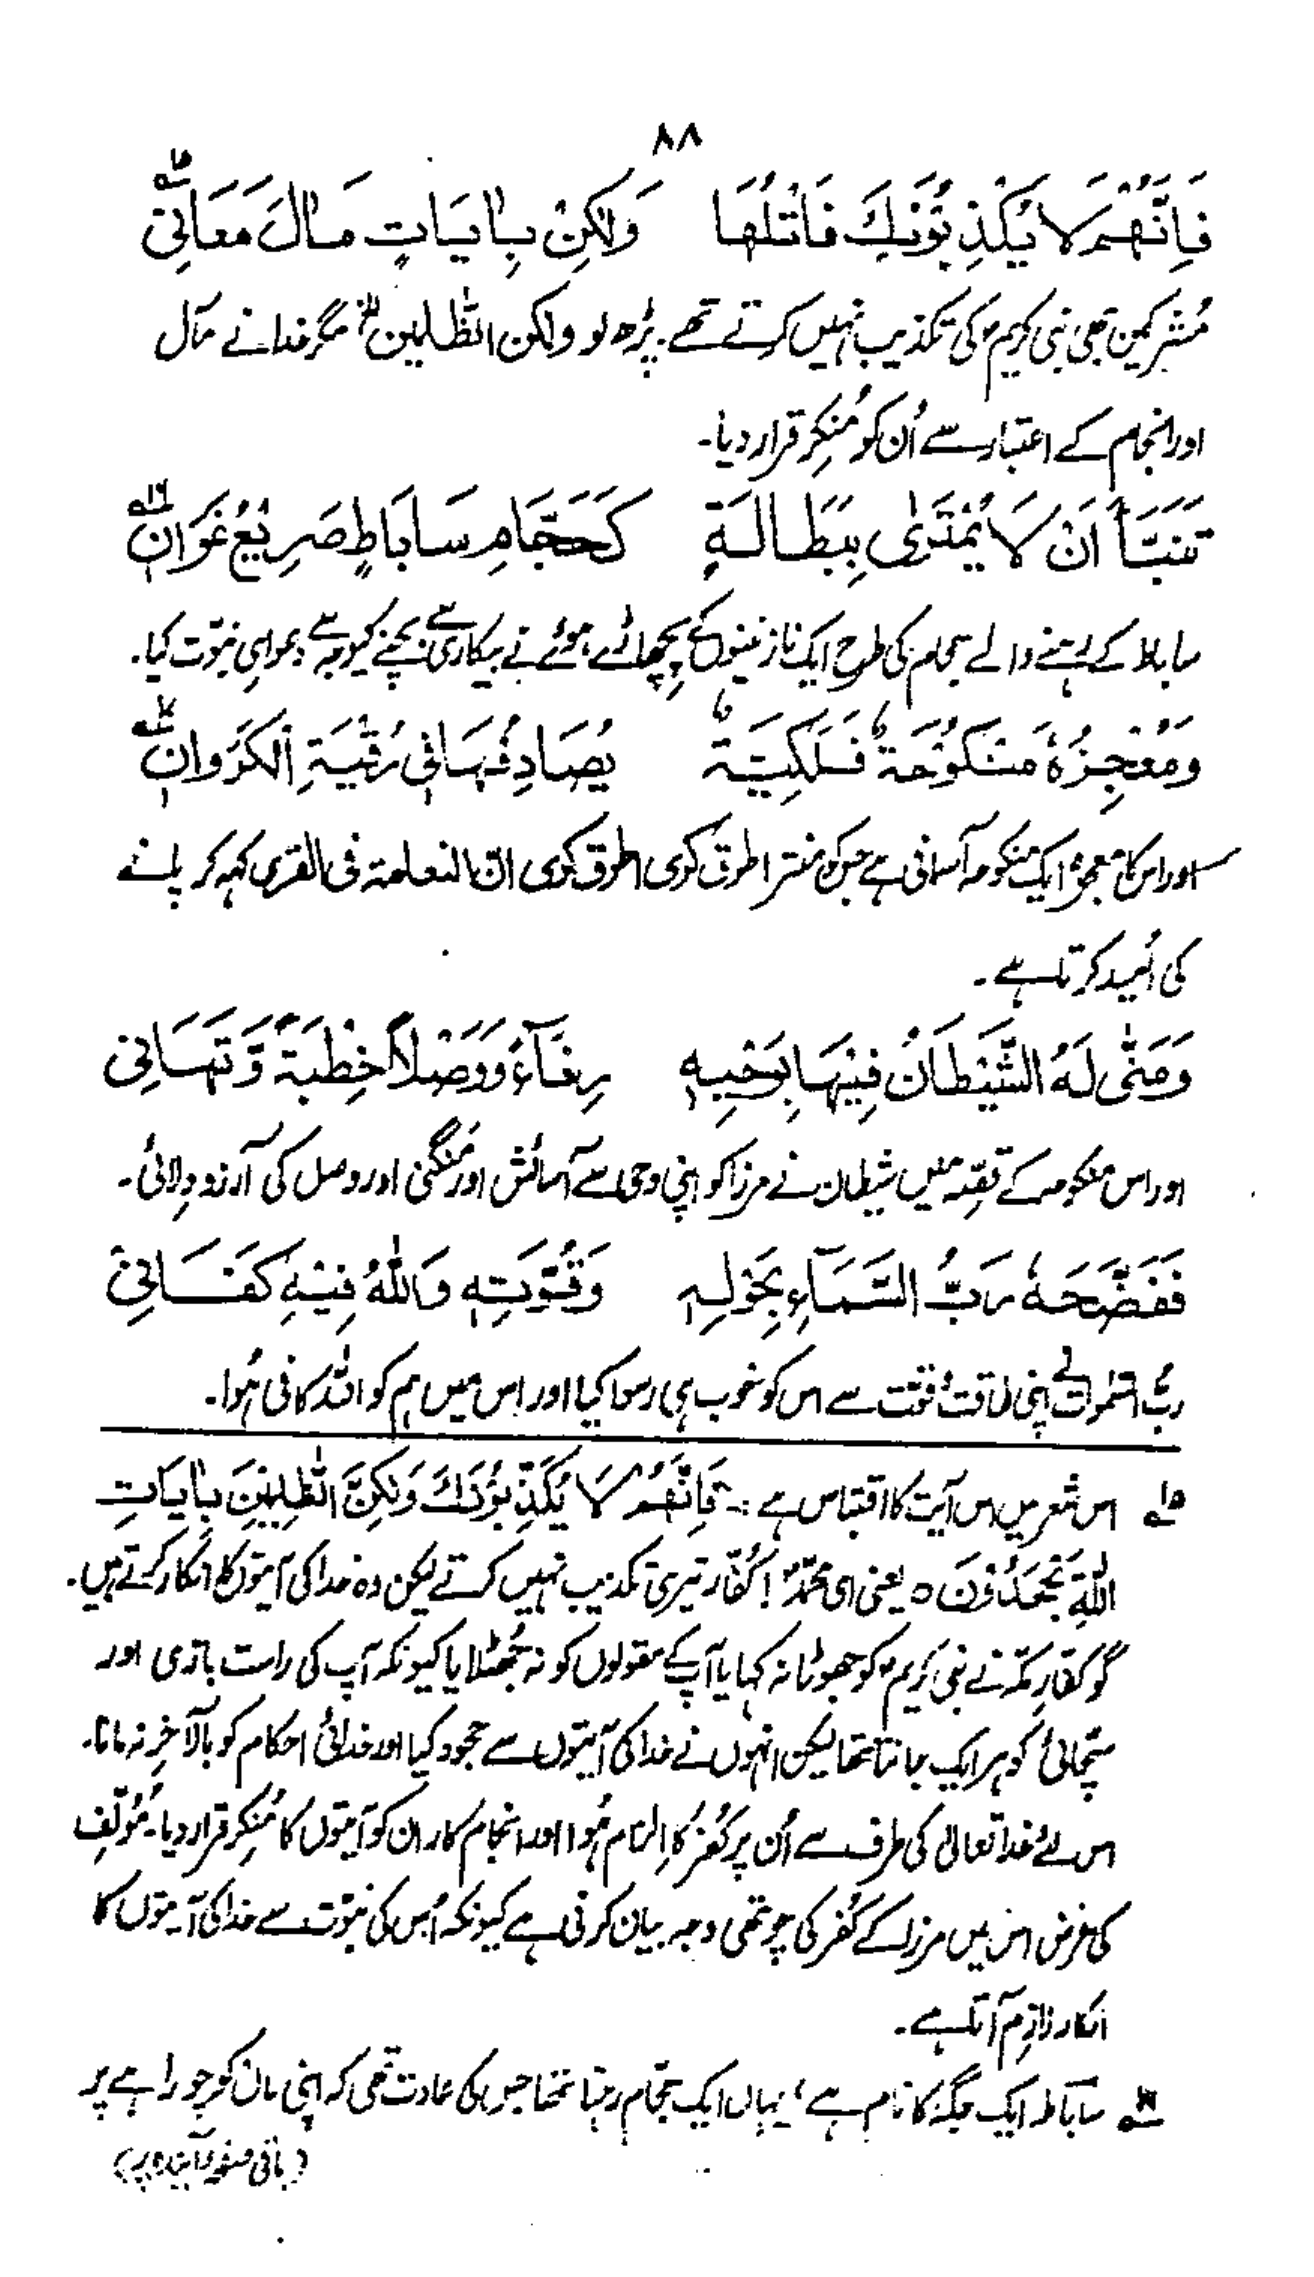 ۸۸
فَاِنَّهُمْ لَا يُكَذِّبُوْنَكَ فَاتْلُهَا وَلٰكِنْ بِاٰيَاتٍ مَاٰلَ مَعَانِیْ ۱۵
مُشرکین بھی نبی کریمؐ کی تکذیب نہیں کرتے تھے۔ پڑھ لو ولکن الظّٰلمین الخ مگر خدا نے مآل
اور انجام کے اعتبار سے اُن کو مُنکِر قرار دیا۔
تَنَبَّأَ اَنْ لَا يُمْتَرٰی بِبَطَالَةٍ كَحَجَّامِ سَابَاطٍ صَرِيْعُ غَوَانٖ ۱۶
ساباط کے رہنے والے حجام کی طرح ایک نازنینوں کے پچھاڑے ہوئے نے بیکاری سے بچنے کیوجہ سے دعوایِ نبوّت کیا۔
وَمُعْجِزُهٗ مَنْكُوْحَةٌ فَلَكِيَّةٌ يُصَادِفُهَا فِیْ رُقْيَةِ الْكَرَوَانٖ ۱۷
اور اس کا معجزہ ایک منکوحہ آسمانی ہے جس کو منتر اطرق کری اطرق کری انّ النعامة فی القری کہہ کر پانے
کی اُمید کرتا ہے۔
وَمَنّٰی لَهُ الشَّيْطَانُ فِيْهَا بِوَحْيِهٖ رِفَآءً وَوَصْلًا خِطْبَةً وَّتَهَانِی
اور اس منکوحہ کے قصّہ میں شیطان نے مرزا کو اپنی وحی سے آسائش اور مَنگنی اور وصل کی آرزو دِلائی۔
فَفَضَّحَهٗ رَبُّ السَّمَآءِ بِحَوْلِهٖ وَقُوَّتِهٖ وَاللّٰهُ فِيْهِ كَفَانِیْ
ربُّ السّمٰوات نے اپنی طاقت و قوّت سے اس کو خوب ہی رسوا کیا اور اس میں ہم کو اللہ کافی ہُوا۔
۱۵ اس شعر میں اس آیت کا اقتباس ہے :- فَاِنَّهُمْ لَا يُكَذِّبُوْنَكَ وَلٰكِنَّ الظّٰلِمِيْنَ بِاٰيَاتِ
اللّٰهِ يَجْحَدُوْنَ ہ یعنی ای محمّدؐ! کُفّار تیری تکذیب نہیں کرتے لیکن وہ خدا کی آیتوں کا انکار کرتے ہیں۔
گو کفّارِ مکّہ نے نبی کریمؐ کو جھوٹا نہ کہا یا آپ کے مقولوں کو نہ جُھٹلایا کیونکہ آپ کی راست بازی اور
سچّائی کو ہر ایک جانتا تھا لیکن انہوں نے خدا کی آیتوں سے جحود کیا اور خدائی احکام کو بالآخِر نہ مانا۔
اس لئے خدا تعالیٰ کی طرف سے اُن پر کُفر کا اِلزام ہُوا اور انجام کار ان کو آیتوں کا مُنکِر قرار دیا۔ مُؤلّفِ
کی غرض اس میں مرزا کے کُفر کی چوتھی وجہ بیان کرنی ہے کیونکہ اُس کی نبوّت سے خدا کی آیتوں کا
انکار لازم آتا ہے۔
۱۶ ساباط ایک جگہ کا نام ہے، یہاں ایک حجّام رہتا تھا جس کی عادت تھی کہ اپنی ماں کو چوراہے پر
(باقی صفحہ آئندہ پر)